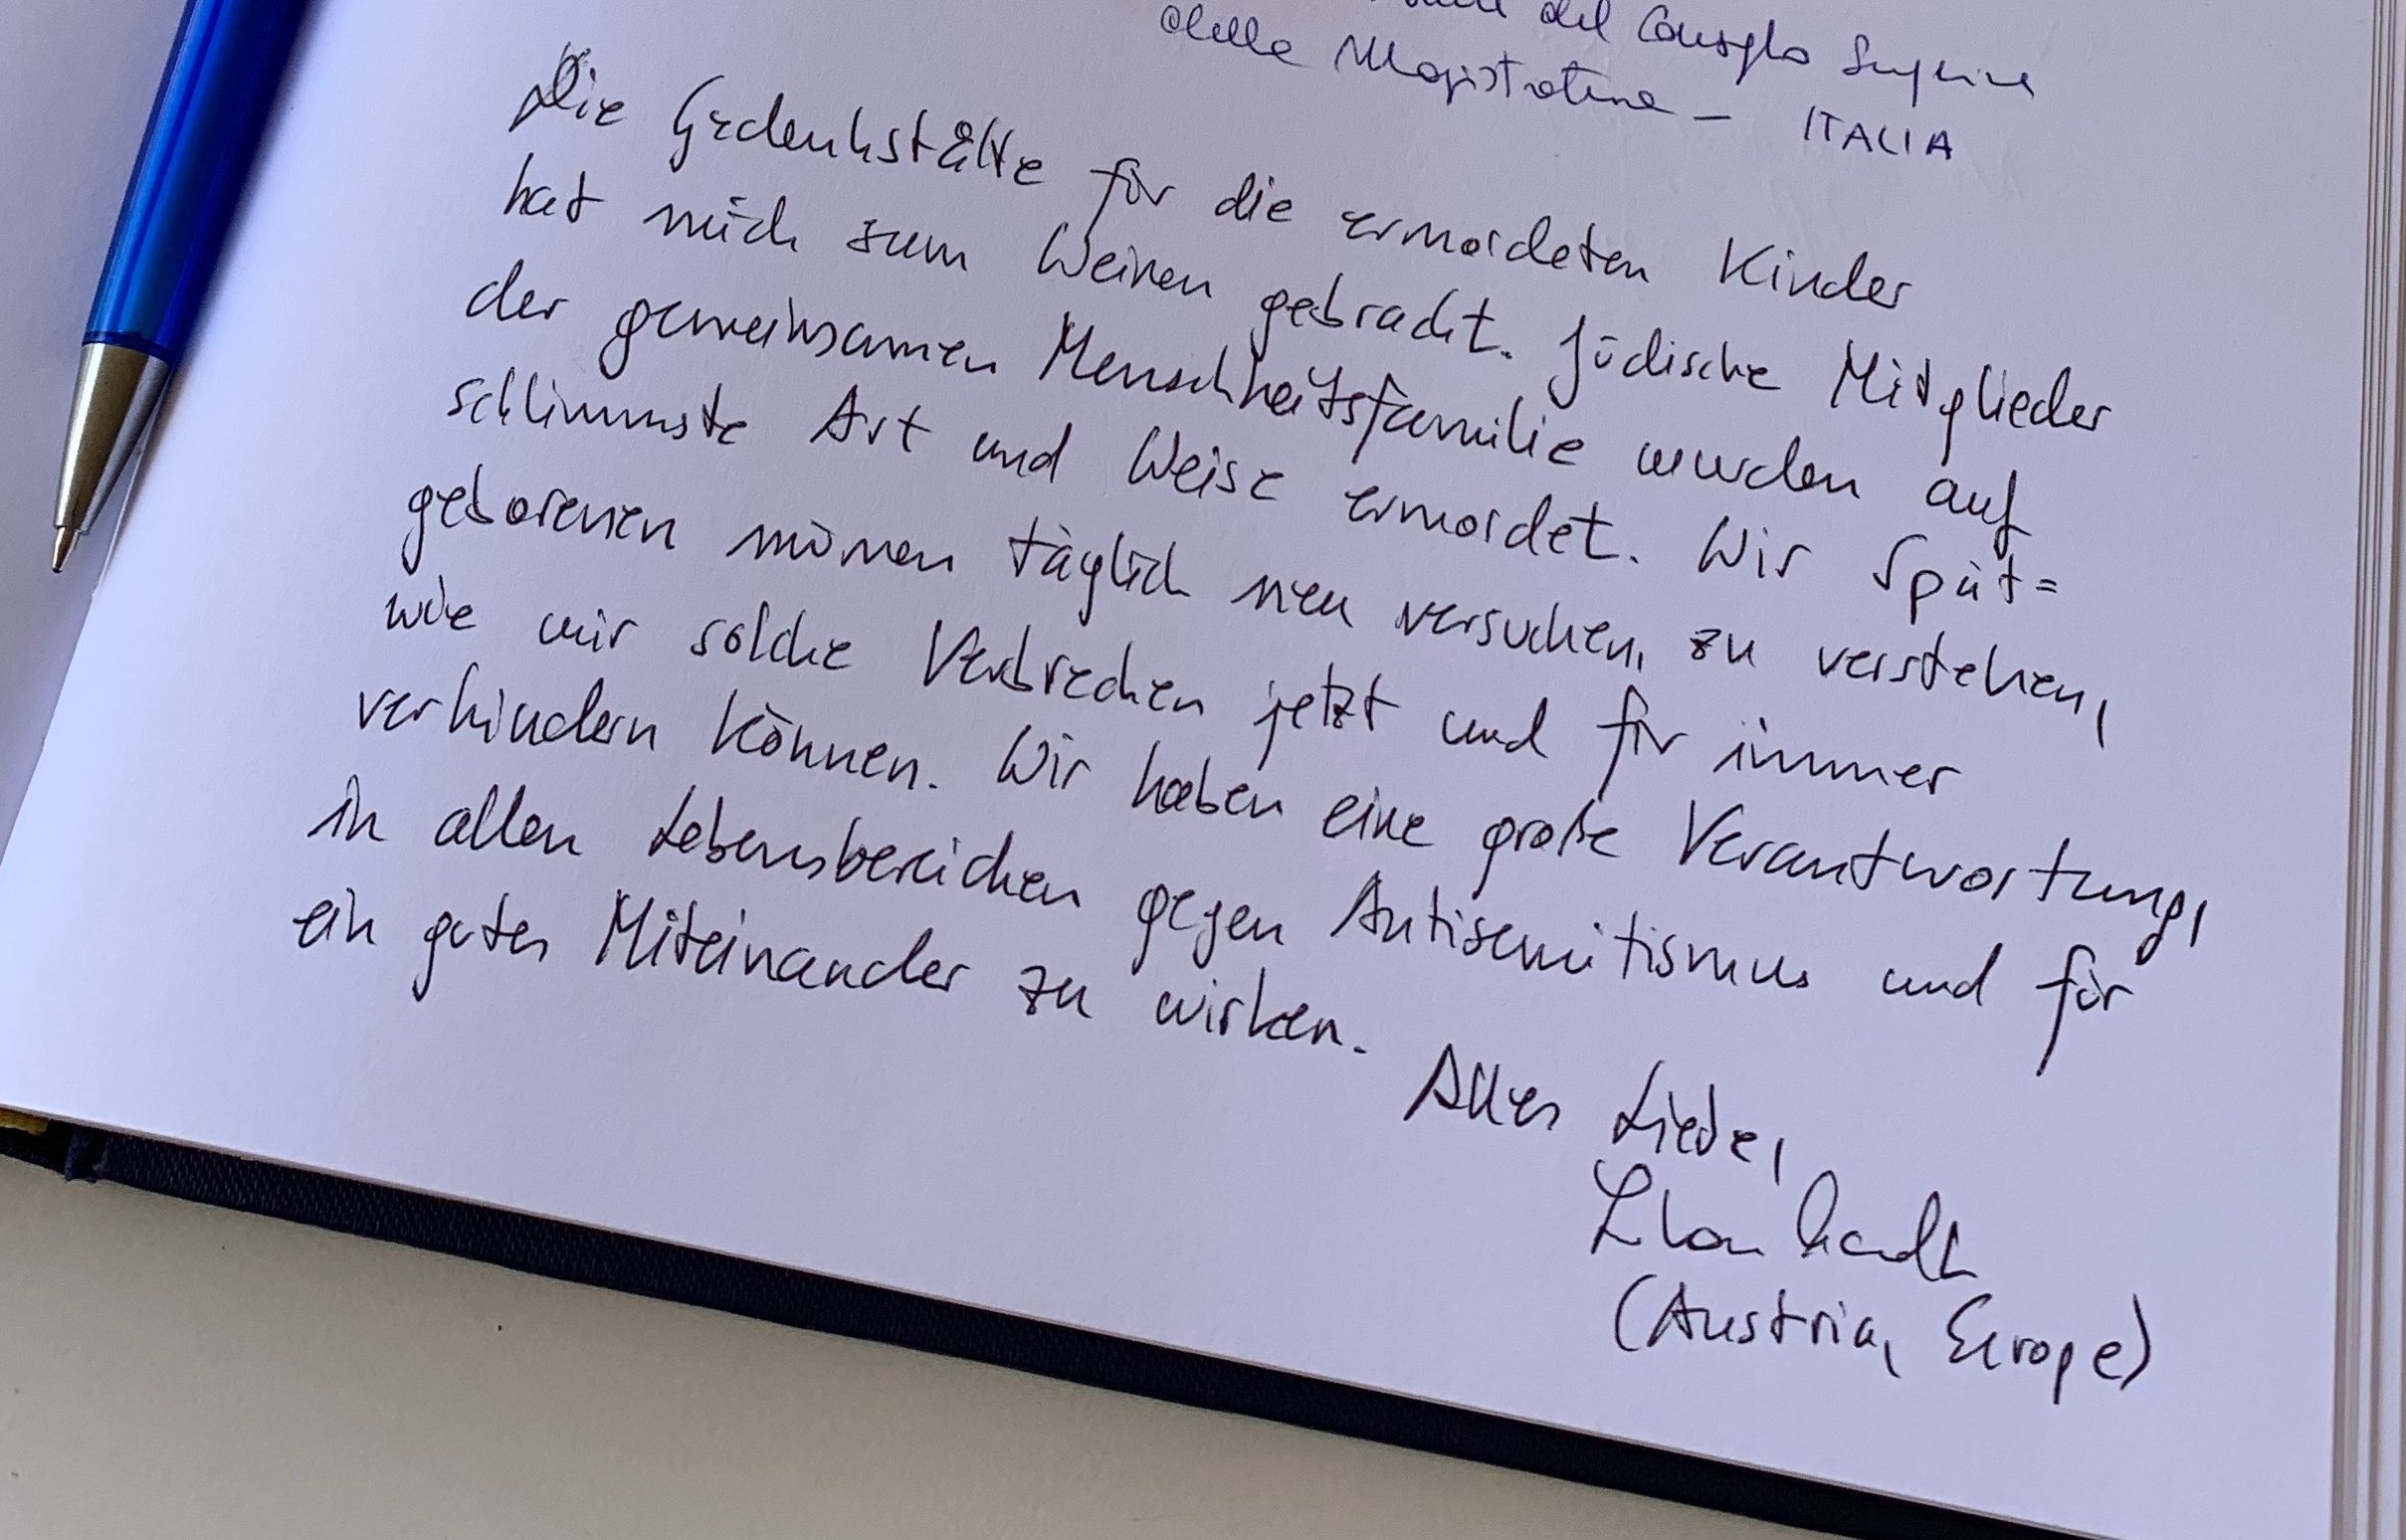 del Consiglo Superiore
della Magistratura – ITALIA
Die Gedenkstätte für die ermordeten Kinder
hat mich zum Weinen gebracht. Jüdische Mitglieder
der gemeinsamen Menschheitsfamilie wurden auf
schlimmste Art und Weise ermordet. Wir Spät=
geborenen müssen täglich neu versuchen, zu verstehen,
wie wir solche Verbrechen jetzt und für immer
verhindern können. Wir haben eine große Verantwortung,
in allen Lebensbereichen gegen Antisemitismus und für
ein gutes Miteinander zu wirken.
Alles Liebe,
(Austria, Europe)